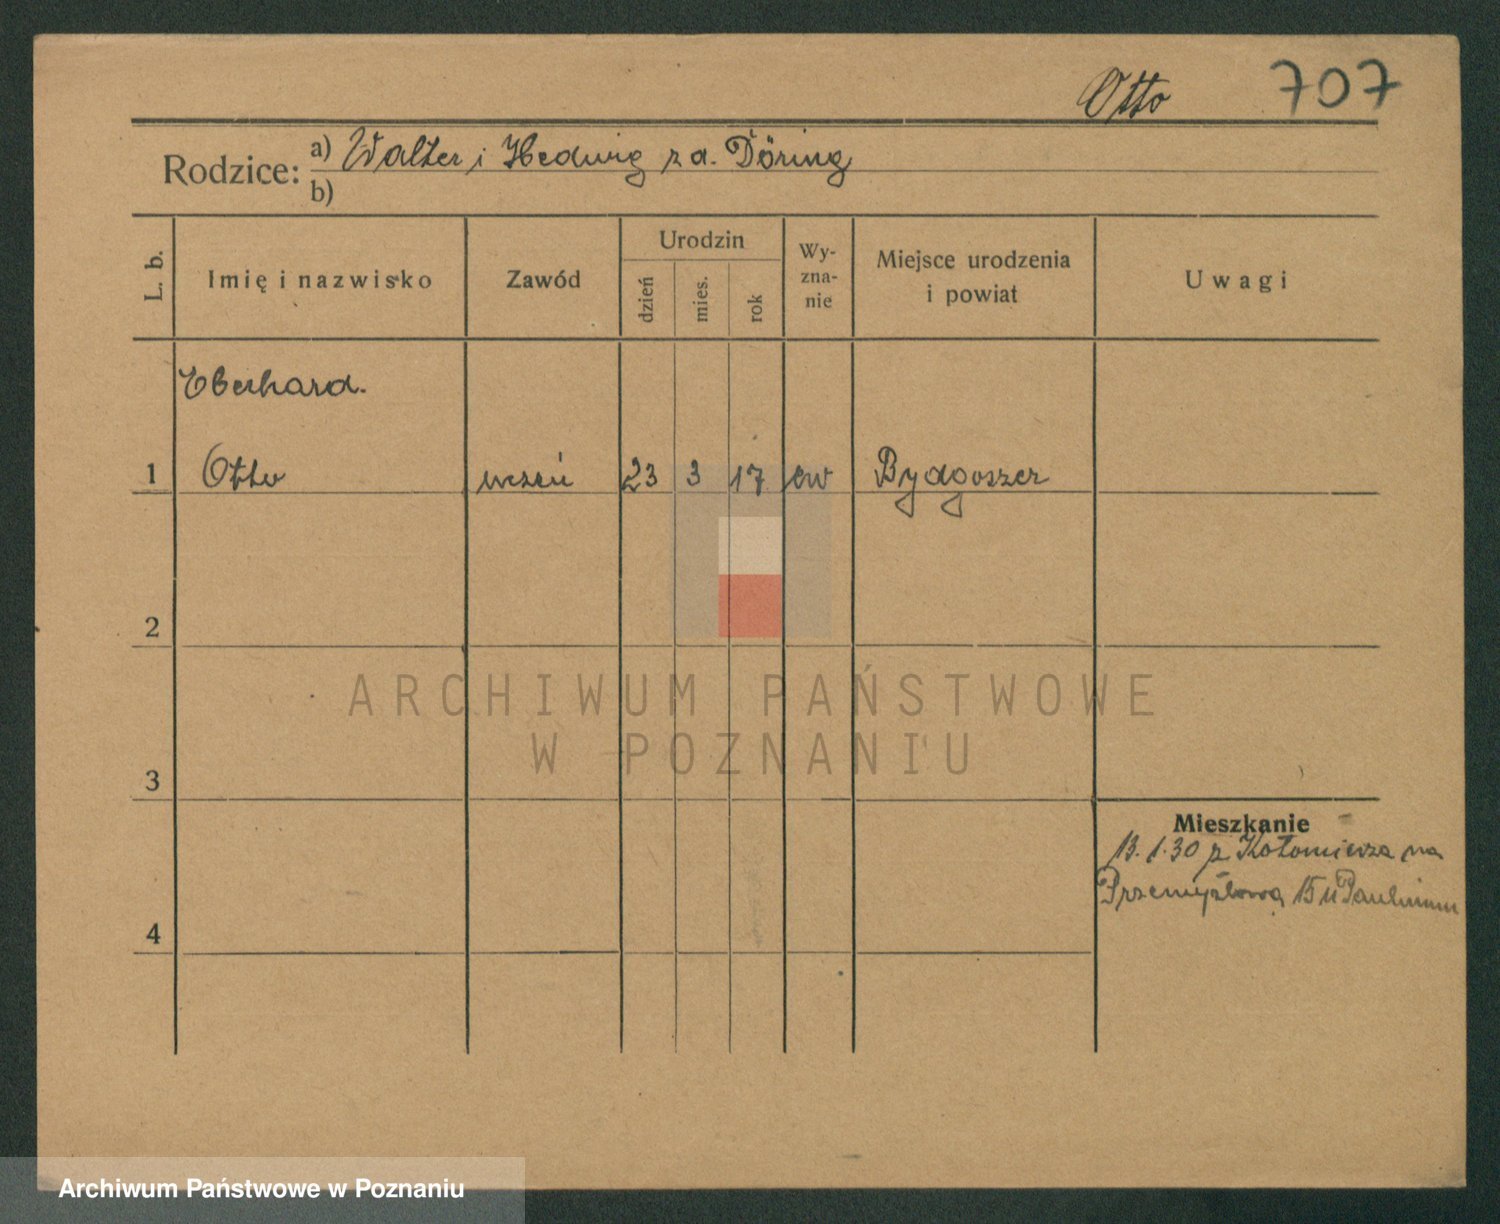 Otto 707
Rodzice: a) Walter i Hedwig z d. Döring
b)
L. b.
Imię i nazwisko
Zawód
Urodzin
dzień
mies.
rok
Wy-
zna-
nie
Miejsce urodzenia
i powiat
Uwagi
Eberhard.
1 Otto uczeń 23 3 17 ew Bydgoszcz
2
ARCHIWUM PAŃSTWOWE
W POZNANIU
3
Mieszkanie
13.1.30 z na
Przemysłową 15 u
4
Archiwum Państwowe w Poznaniu